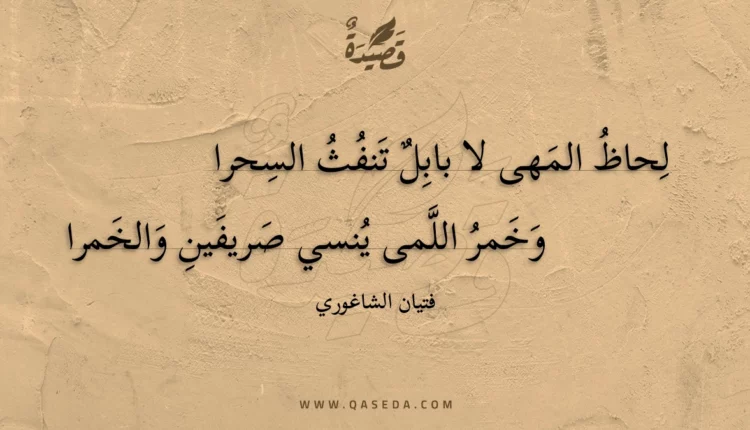 قَصِيدَةٌ
لِحاظُ المَهى لا بابِلٌ تَنفُثُ السِحرا
وَخَمرُ اللَّمى يُنسي صَريفَينِ وَالخَمرا
فتيان الشاغوري
WWW.QASEDA.COM